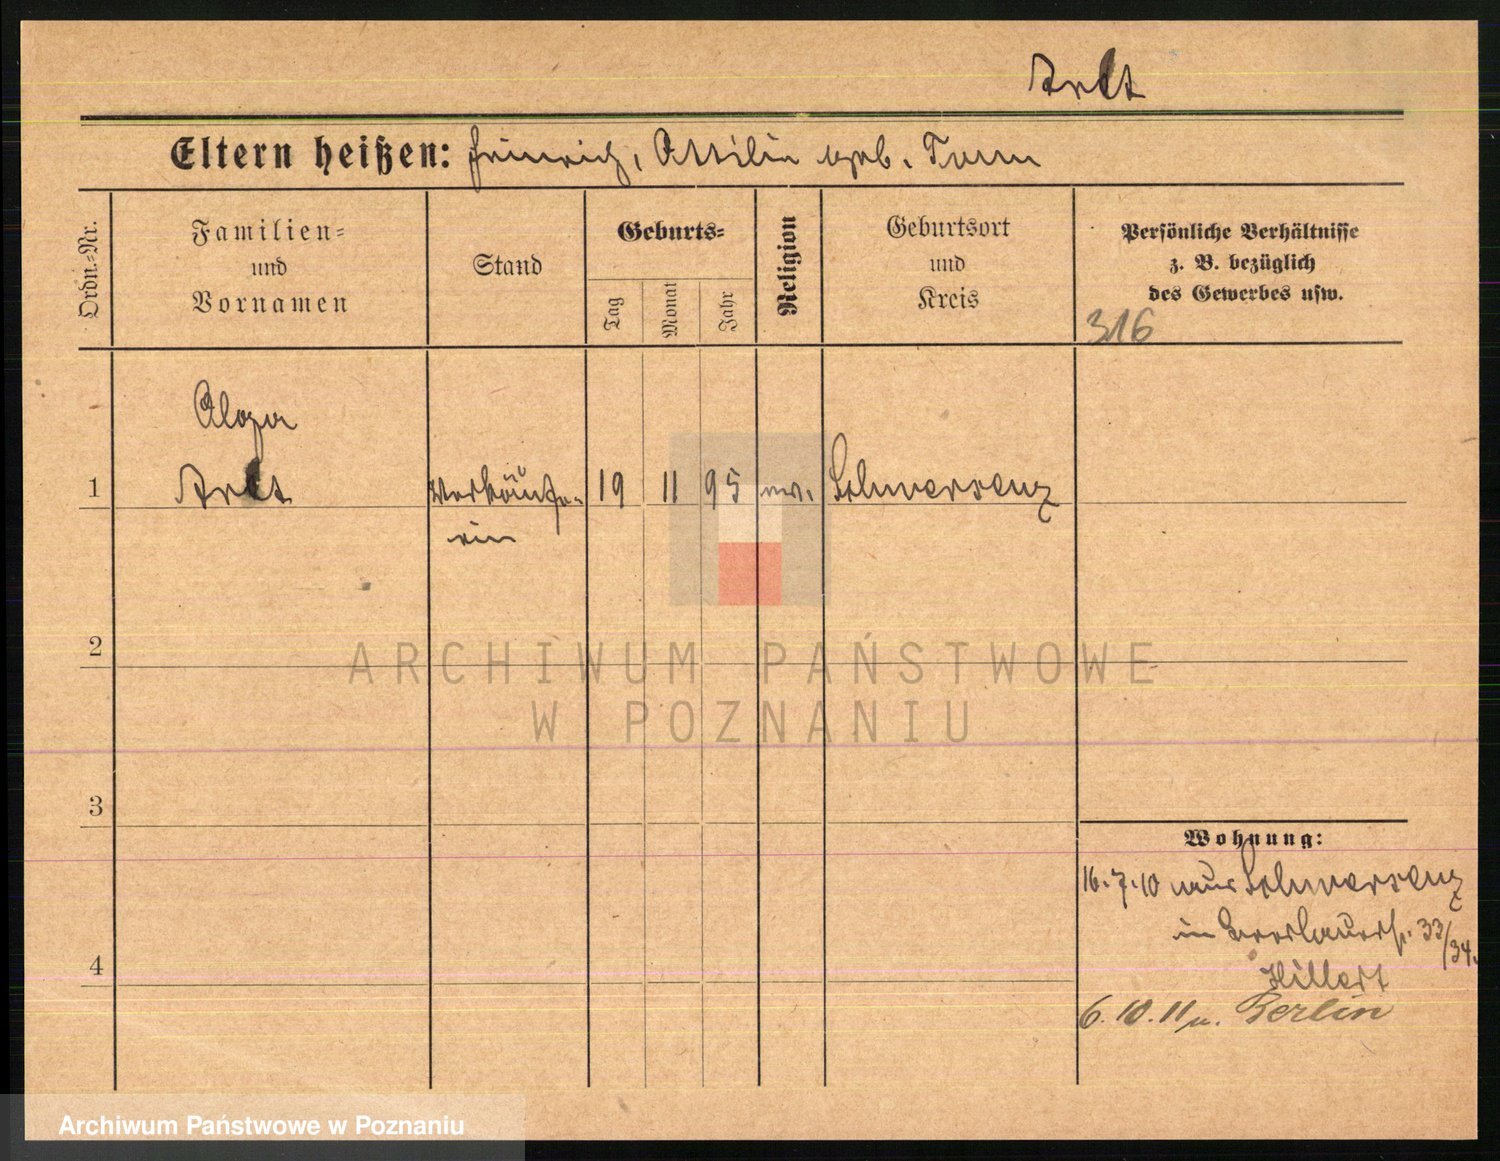 Arlt
Eltern heißen: Heinrich, Ottilie geb. Turm
Ordn.-Nr.
Familien- und Vornamen
Stand
Geburts-
Tag
Monat
Jahr
Religion
Geburtsort und Kreis
Persönliche Verhältnisse
z. B. bezüglich
des Gewerbes usw.
316
1
Arlt
Verkäufe-
rin
19
11
95
ev.
Schwersenz
2
ARCHIWUM PAŃSTWOWE
W POZNANIU
3
4
Wohnung:
16.7.10 aus Schwersenz
in Breslauerstr. 33/34.
Hillert
6.10.11 n. Berlin
Archiwum Państwowe w Poznaniu